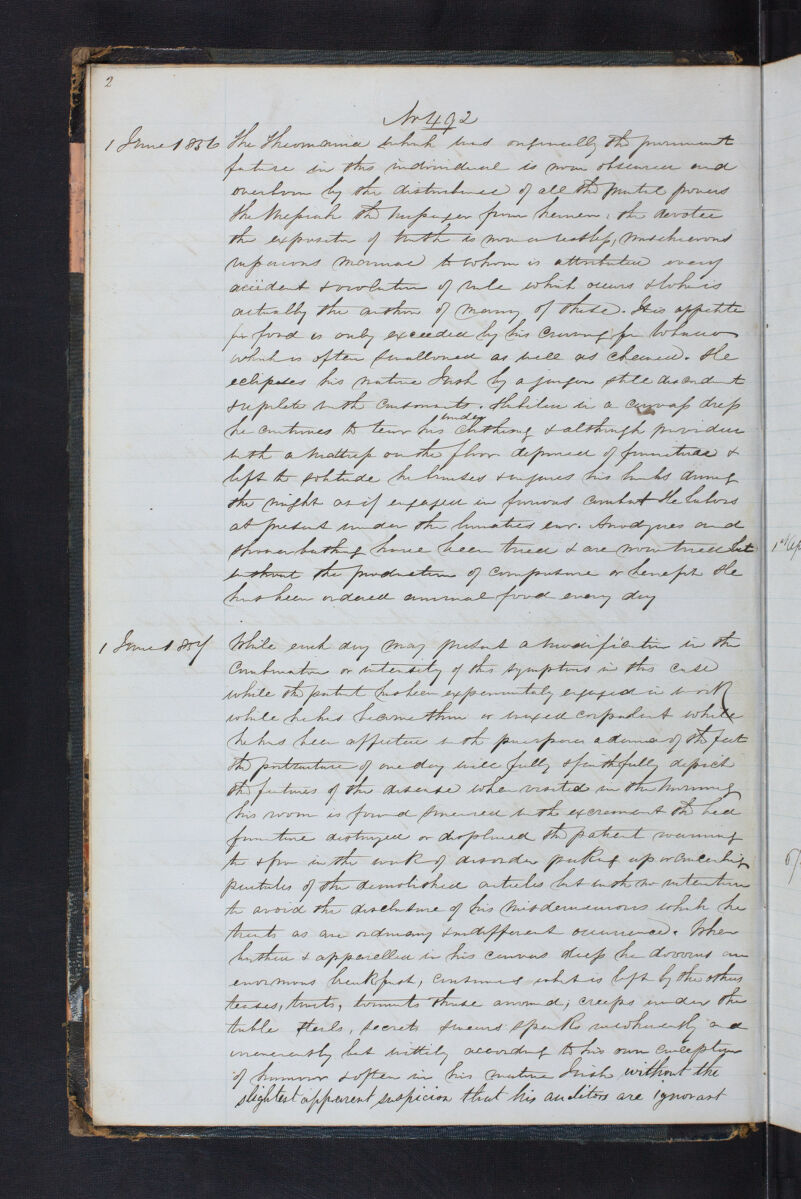 2
No 492
1 June 1856 The Theomania which was originally the prominent
feature in this individual is now obscured and
overborn by the disturbance of all the mental powers
the Messiah the messenger from heaven: the devotee
the expositor of truth is now a restless, mischievous
rapacious maniac to whom is attributed every
accident & violation of rule which occurs & who is
actually the author of many of these. His appetite
for food is only exceeded by his craving for tobacco
which is often swallowed as well as chewed. He
eclipses his native Irish by a jargon still discordant
& replete with consonants. Habited in a canvass dress
he continues to tear his under clothing & although provided
with a mattress on the floor deprived of furniture &
left to solitude he bruises & injures his limbs during
the night as if engaged in furious combat He labors
at present under the lunatics ear. Anodynes and
shower bathing have been tried & are now tried but
without the production of composure or benefit He
has been ordered animal food every day
1 June 1857 While each day may present a modification in the
combination or intensity of the symptoms in this case
while the patient has been experimentally engaged in work
while he has become thin or waxed corpulent while
he has been affected with oedema of the feet
the portraiture of one day will fully & faithfully depict
the features of the disease when visited in the morning
his room is found smeared with excrement the bed
furniture destroyed or displaced the patient roaming
to & fro in the work of disorder picking up or concealing
particles of the demolished articles but with no intention
to avoid the disclosure of his misdemeanours which he
treats as an ordinary & indifferent occurrence. When
bathed & apparelled in his canvas dress he devours an
enormous breakfast, consumes what is left by the others
teases, taunts, torments those around; creeps under the
table steals, secrets swears speaks incoherently and
incessantly but wittily according to his own conception
of humour & often in his native Irish without the
slightest apparent suspicion that his auditors are ignorant